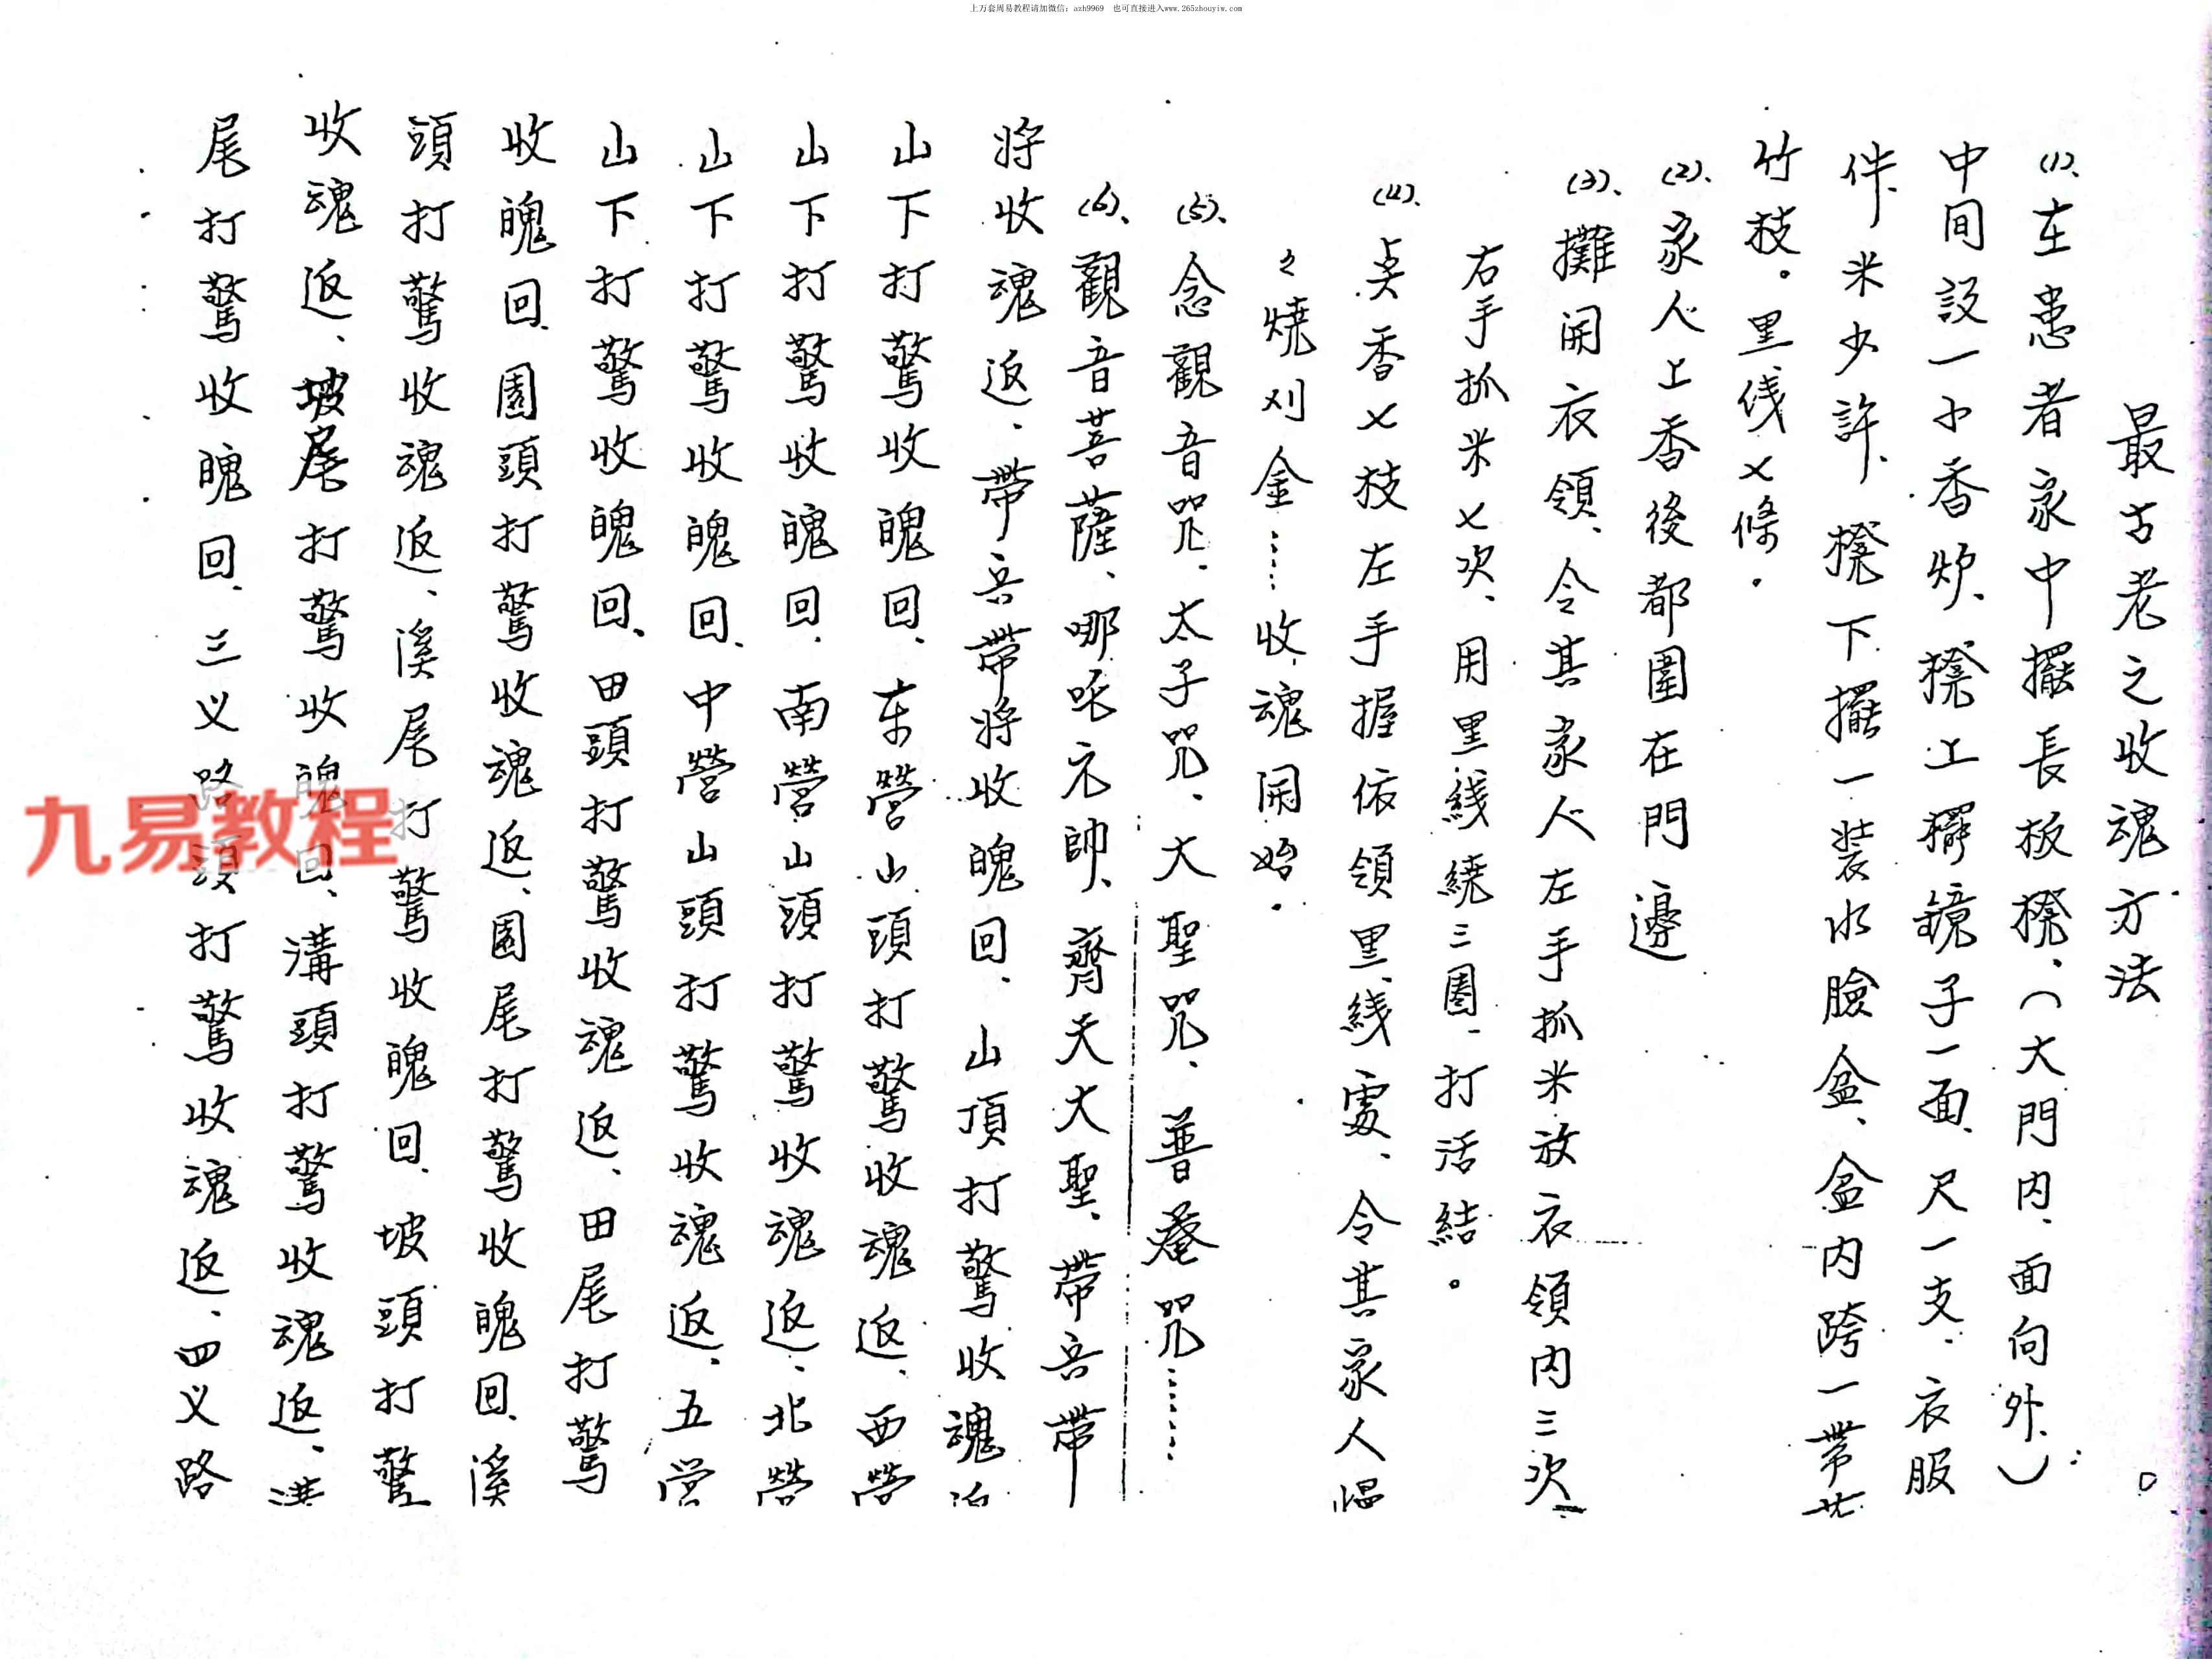 上万套周易教程请加微信：azh9969 也可直接进入www.265zhouyiw.com
最古老之收魂方法
(1)、在患者家中擺長板櫈、（大門内、面向外、）
中间設一小香炉、櫈上擺鏡子一面、尺一支、衣服
件、米少許、櫈下擺一装水臉盆、盆内跨一帶
竹枝。黑线七條。
(2)、家人上香後都圍在門邊
(3)、攤開衣領、令其家人左手抓米放衣領内三次、
右手抓米七次、用黑綫繞三圈、打活結。
(4)、点香七枝左手握依領黑綫處、令其家人
々燒刈金……收魂開始。
(5)、念觀音咒、太子咒、大聖咒、普菴咒……
(6)、觀音菩薩、哪吒元帥、齊天大聖、帶兵帶
将收魂返、帶兵帶将收魄回、山頂打驚收魂返
山下打驚收魄回、东營山頭打驚收魂返、西營
山下打驚收魄回、南營山頭打驚收魂返、北營
山下打驚收魄回、中營山頭打驚收魂返、五営
山下打驚收魄回、田頭打驚收魂返、田尾打驚
收魄回、園頭打驚收魂返、園尾打驚收魄回、溪
頭打驚收魂返、溪尾打驚收魄回、坡頭打驚
收魂返、坡尾打驚收魄回、溝頭打驚收魂返、溝
尾打驚收魄回、三义路頭打驚收魂返、四义路
九易教程